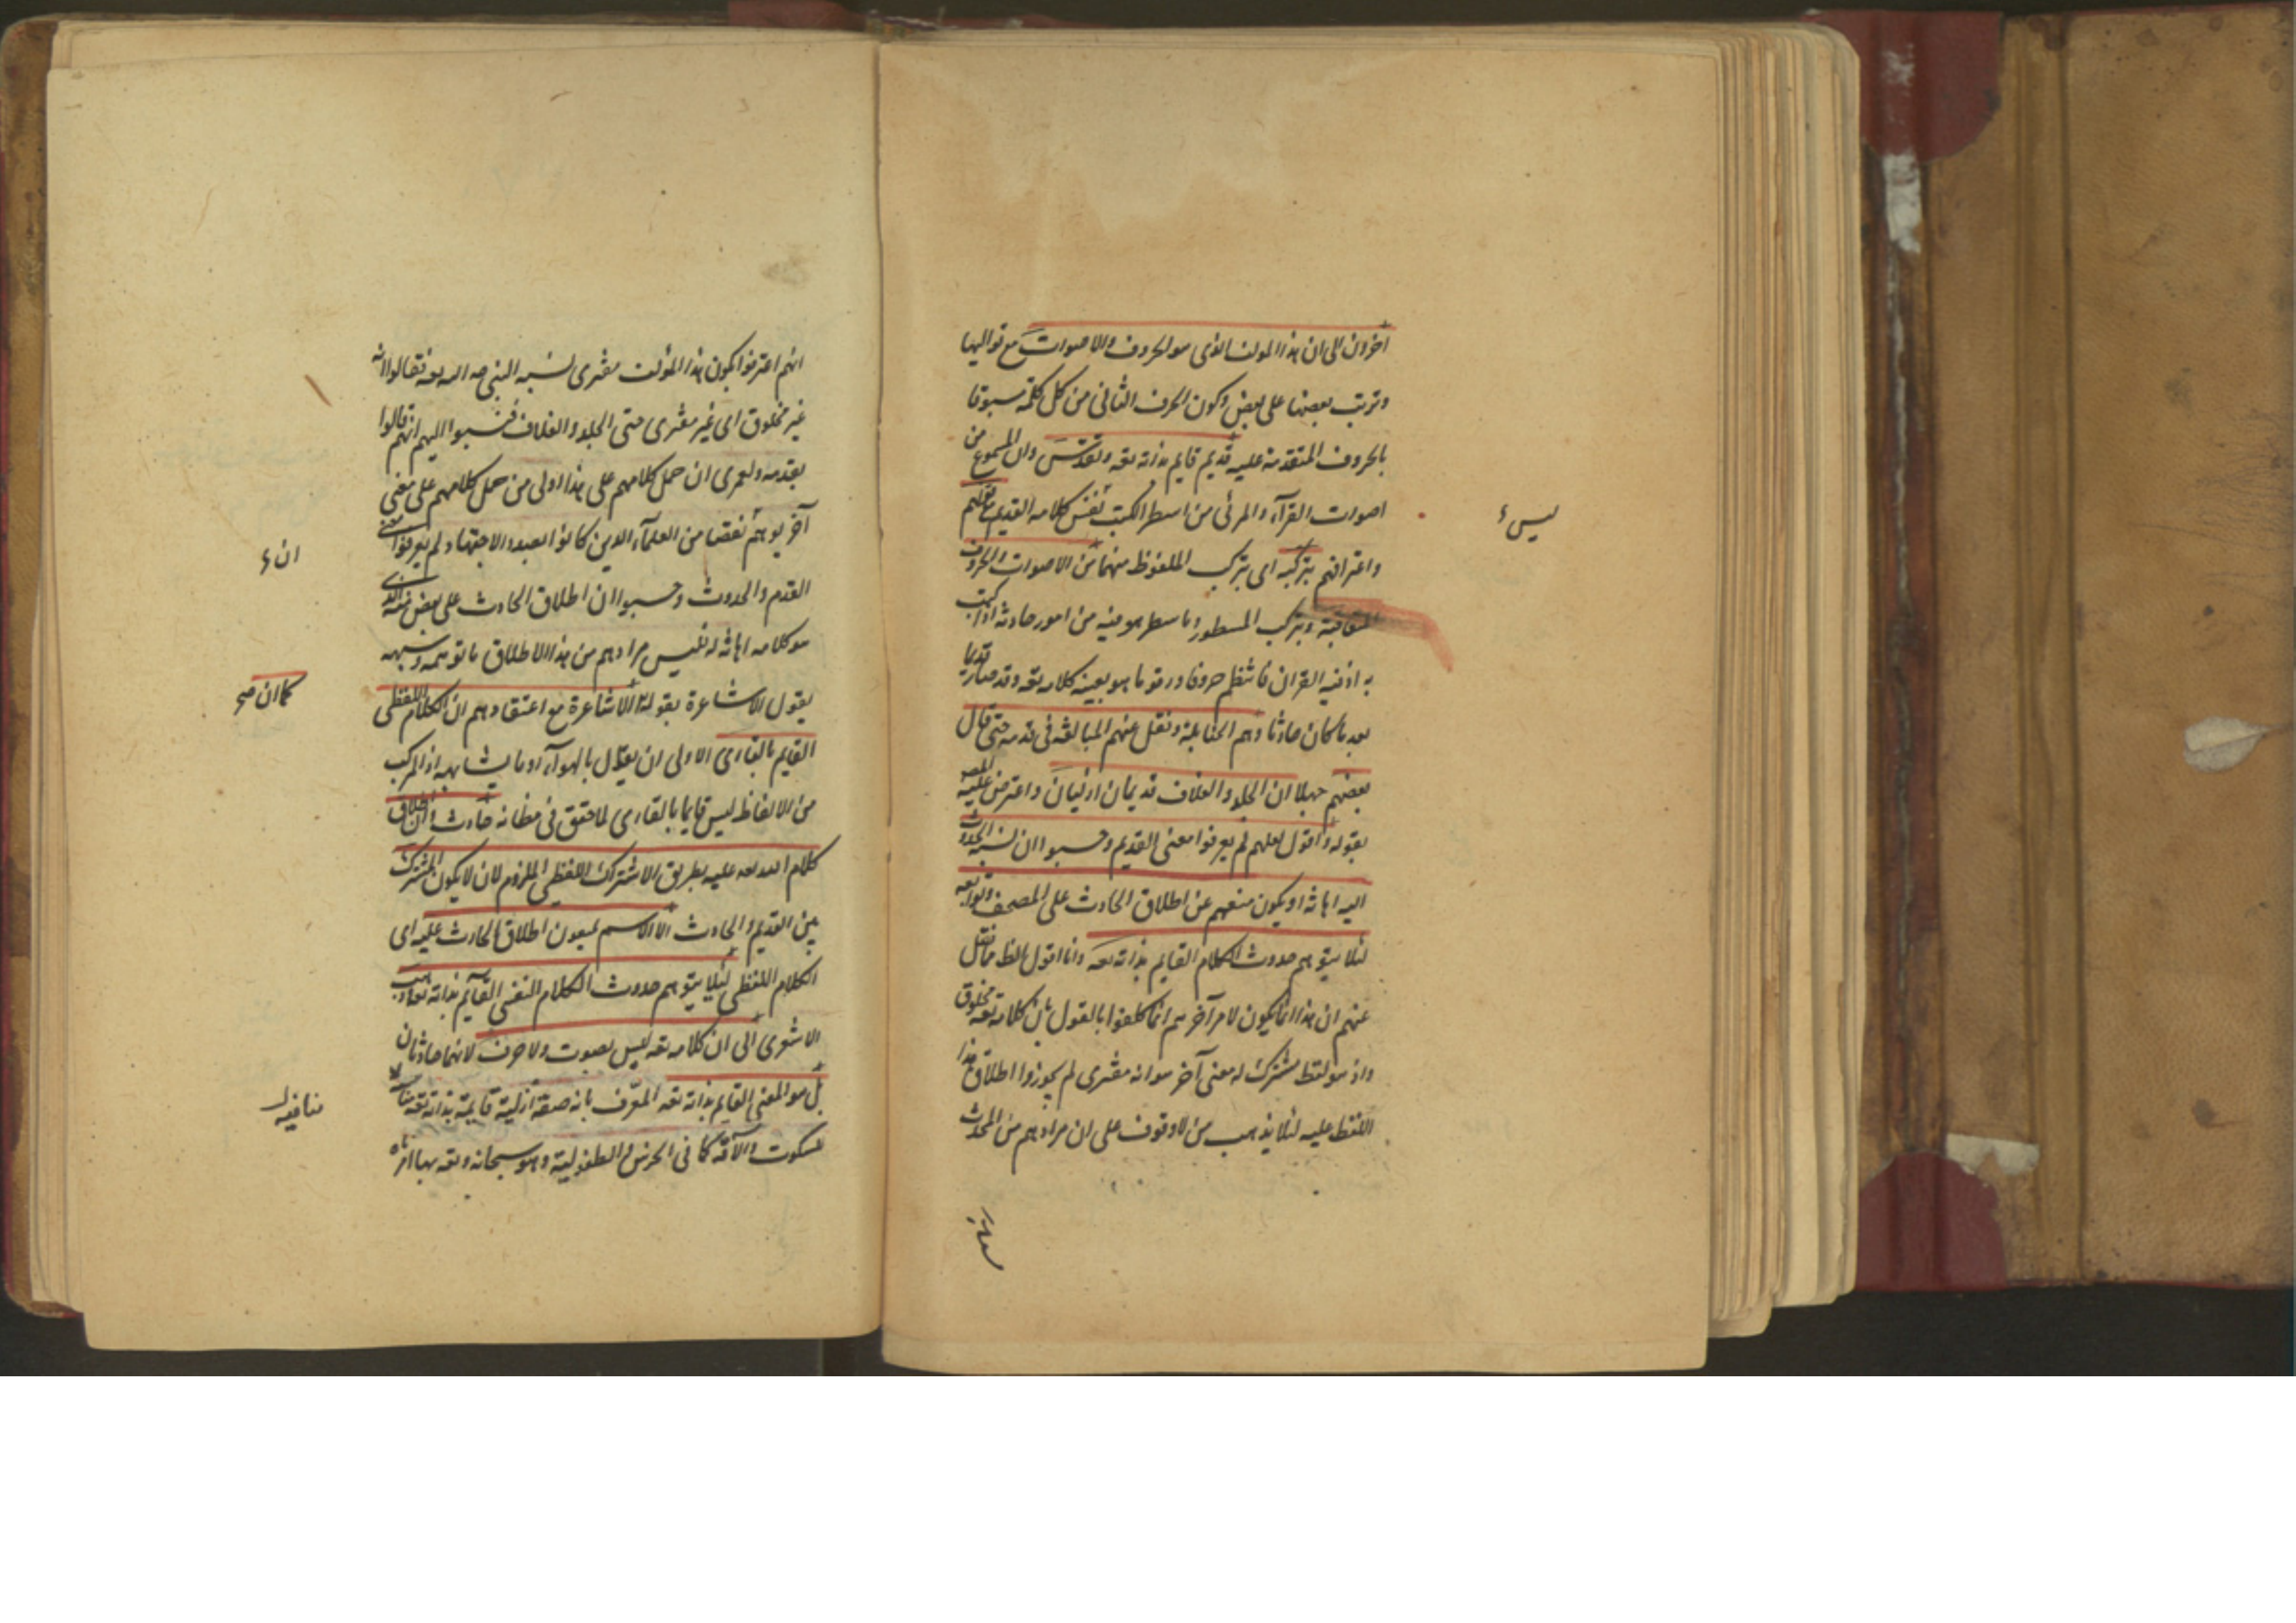 آخرون الى ان هذا المولف الذى هو الحروف والاصوات مع تواليها
وترتب بعضها على بعض وكون الحرف الثانى من كل كلمة مسبوقا
بالحروف المتقدمة عليه قديم قايم بذاته تعه وتقدس وان المسموع من
اصوات القرآء والمرئى من اسطر الكتب نفس كلامه القديم مع قولهم
ليس
واعترافهم بتركبه اى بتركب الملفوظ منهما من الاصوات والحروف
المتعاقبة وبتركب المسطور وما سطر هو فيه من امور حادثة اذا كتب
به اذ فيه القران فانتظم حروفا ورقوما هو بعينه كلامه تعه وقد صار قديما
بعد ما كان حادثا وهم الحنابلة ونقل عنهم المبالغة فى قدمه حتى قال
بعضهم جهلا ان الجلد والغلاف قديمان ازليان واعترض عليه المصه
بقوله واقول لعلهم لم يعرفوا معنى القديم وحسبوا ان نسبة الحدوث
اليه اهانة او يكون منعهم عن اطلاق الحادث على المصحف وتوابعه
لئلا يتوهم حدوث الكلام القايم بذاته تعه وانا اقول لعل ما نقل
عنهم ان هذا انما يكون لامر آخر هم انما كلفوا بالقول بان كلامه تعه مخلوق
واذ هو لفظ مشترك له معنى آخر هو انه مفترى لم يجوزوا اطلاق هذا
اللفظ عليه لئلا يذهب من لا وقوف على ان مرادهم من المحدث
انهم اعترفوا بكون هذا المؤلف مفترى نسبه النبى صه الى الله تعه فقالوا انه
غير مخلوق اى غير مفترى حتى الجلد والغلاف فنسبوا اليهم انهم قالوا
بقدمه ولعمرى ان حمل كلامهم على هذا اولى من حمل كلامهم على معنى
آخر يوهم نقصا من العلمآء الذين كانوا بصدد الاجتهاد ولم يعرفوا معنى
ان
القدم والحدوث وحسبوا ان اطلاق الحادث على بعض نعته الذى
هو كلامه اهانة له فليس مرادهم من هذا الاطلاق ما توهمه وشبهه
كما ان صح
بقول الاشاعرة بقوله الاشاعرة مع اعتقادهم ان الكلام اللفظى
القايم بالقارى الاولى ان يعدل بالهوآء او ما يشابهه اذ المركب
من الالفاظ ليس قايما بالقارى لما حقق فى مظانه حادث وان اطلاق
كلام الله تعه عليه بطريق الاشتراك اللفظى الملزوم لان لا يكون المشترك
بين القديم والحادث الا الاسم يمنعون اطلاق الحادث عليه اى
الكلام اللفظى لئلا يتوهم حدوث الكلام النفسى القآيم بذاته تعه وذهب
الاشعرى الى ان كلامه تعه ليس بصوت ولا حرف لانهما حادثان
بل هو المعنى القايم بذاته تعه المعرف بانه صفة ازلية قايمة بذاته تعه
منافية
للسكوت والآفة كما فى الخرس والطفولية وهو سبحانه وتعه بها امر ناه